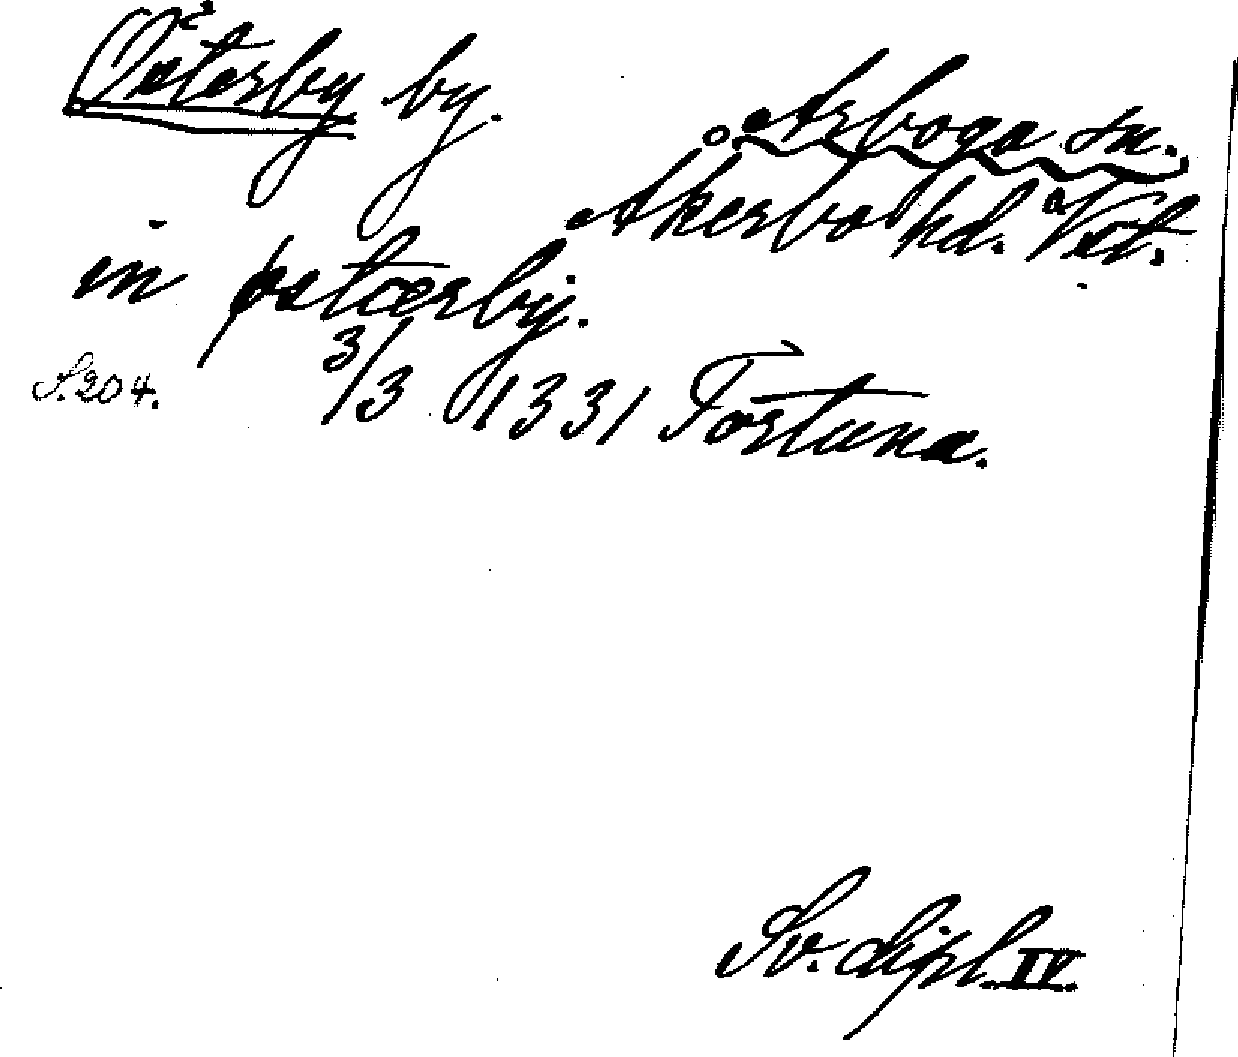 Österby by.
Arboga sn.
Åkerbo hd. Väst.
in østærby.
S. 204. 3/3 1331 Tortuna.
Sv. dipl. IV.